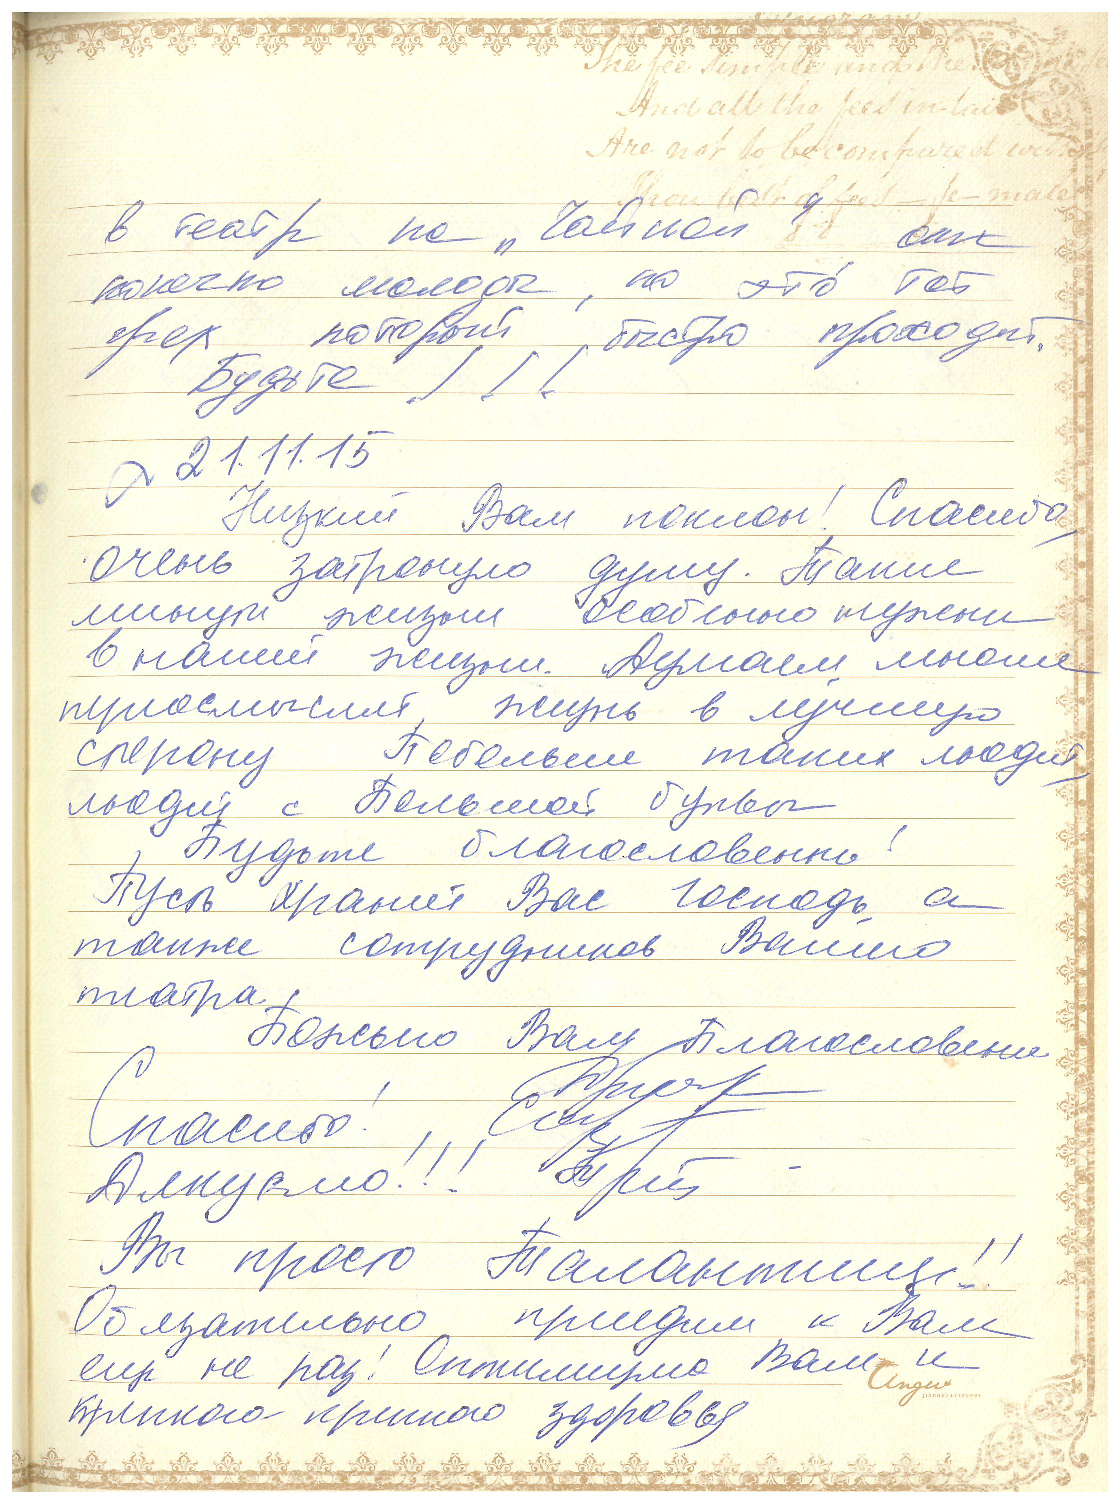 The fee simple and the
And all the fees in tail
Are not to be compared with
Thou best of fees — fe-male
в театр на „Чайная" они
конечно молоды, но это тот
грех который быстро проходит.
Будьте !!!
21.11.15
Низкий Вам поклон! Спасибо,
очень затронуло душу. Такие
минуты жизни особенно нужны
в нашей жизни. Думаем, многие
переосмыслят жизнь в лучшую
сторону Побольше таких людей,
людей с Большой буквы
Будьте благословенны!
Пусть хранит Вас Господь, а
также сотрудников Вашего
театра.
Божьего Вам Благословения
Спасибо!
Дякуємо!!!
Вы просто Талантище!!
Обязательно приедем к Вам
еще не раз! Оптимизма Вам и
крепкого-крепкого здоровья
Angel